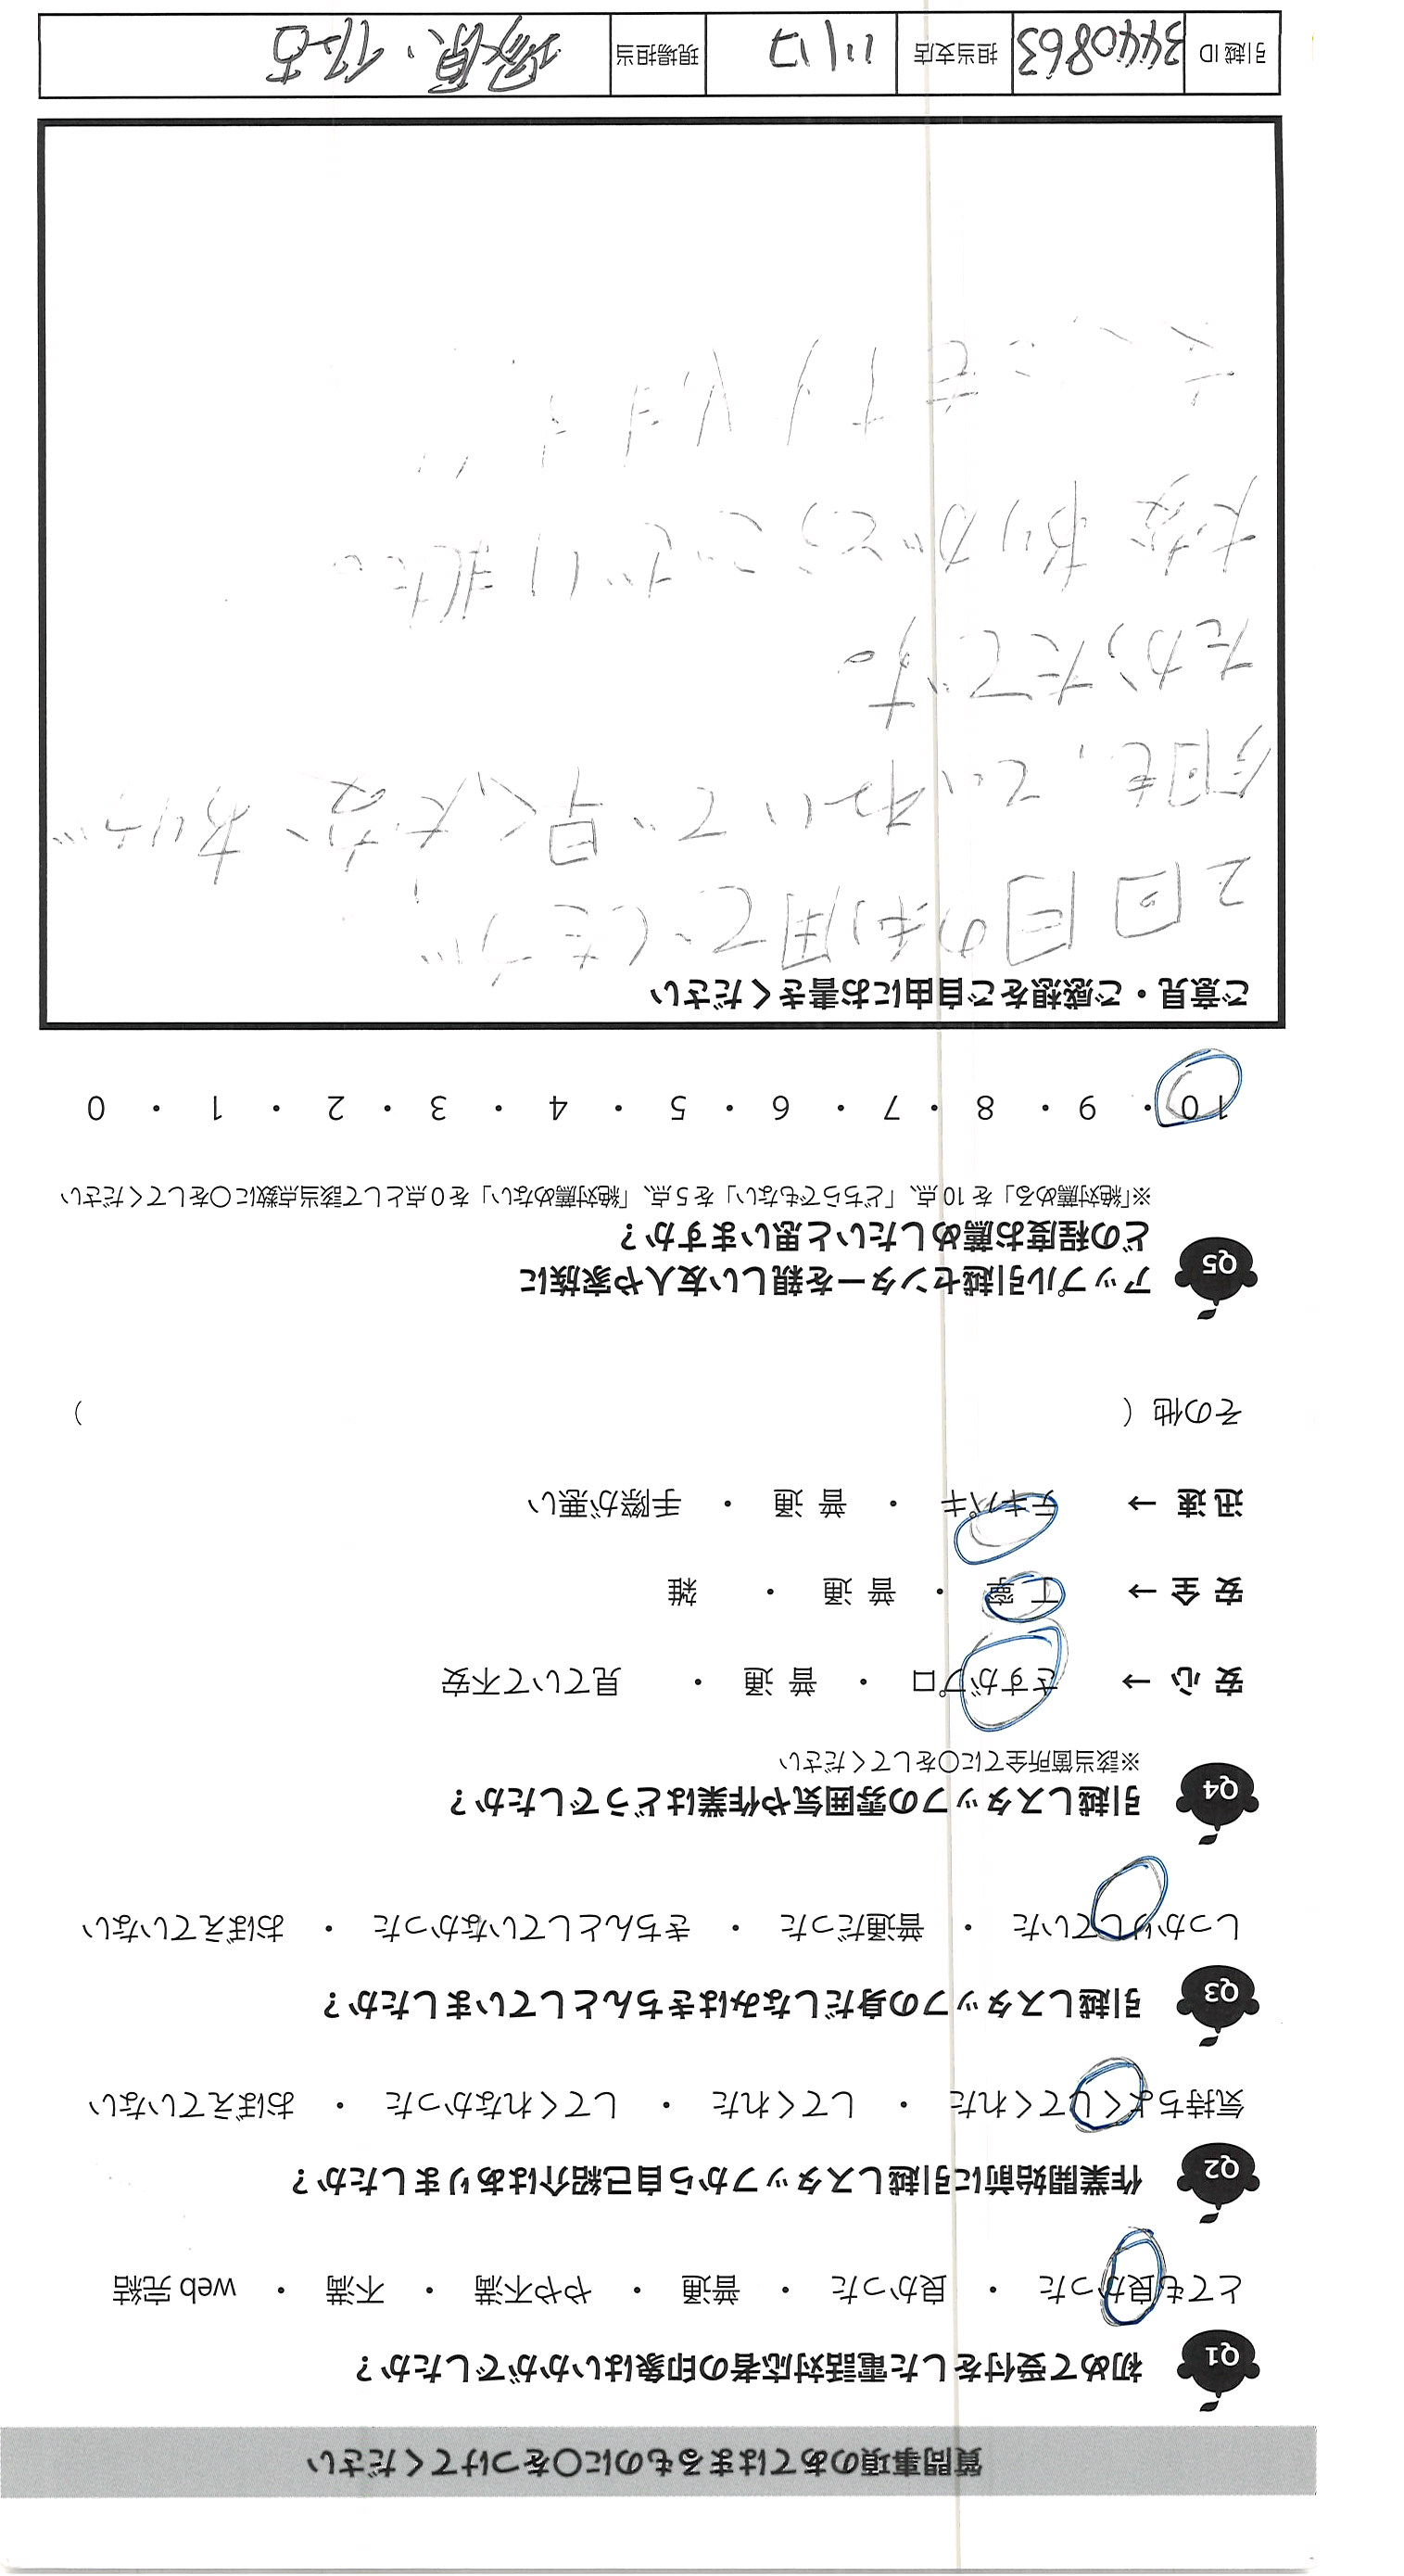 質問事項のあてはまるものに〇をつけてください
Q1 初めて受付をした電話対応者の印象はいかがでしたか？
とても良かった ・ 良かった ・ 普通 ・ やや不満 ・ 不満 ・ web 完結
Q2 作業開始前に引越しスタッフから自己紹介はありましたか？
気持ちよくしてくれた ・ してくれた ・ してくれなかった ・ おぼえていない
Q3 引越しスタッフの身だしなみはきちんとしていましたか？
しっかりしていた ・ 普通だった ・ きちんとしていなかった ・ おぼえていない
Q4 引越しスタッフの雰囲気や作業はどうでしたか？
※該当箇所全てに〇をしてください
安 心 → さすがプロ ・ 普 通 ・ 見ていて不安
安 全 → 丁 寧 ・ 普 通 ・ 雑
迅 速 → テキパキ ・ 普 通 ・ 手際が悪い
その他（ ）
Q5 アップル引越センターを親しい友人や家族に
どの程度お薦めしたいと思いますか？
※「絶対薦める」を 10 点、「どちらでもない」を 5 点、「絶対薦めない」を 0 点として該当点数に〇をしてください
10 ・ 9 ・ 8 ・ 7 ・ 6 ・ 5 ・ 4 ・ 3 ・ 2 ・ 1 ・ 0
ご意見・ご感想をご自由にお書きください
2回目の利用でしたが
今回も、ていねいで早く大変、ありが
たかったです。
大変ありがとうございました。
引越 ID 3440863 担当支店 川口 現場担当